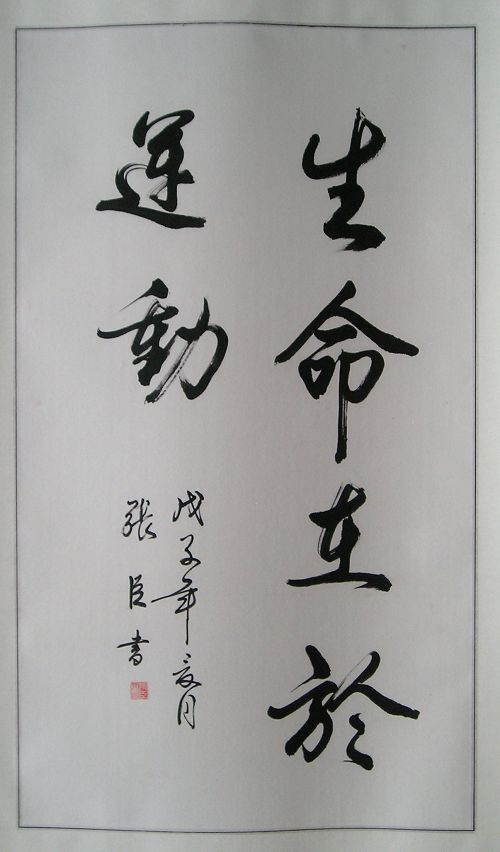 生命在於
運動
戊子年夏月
張臣書